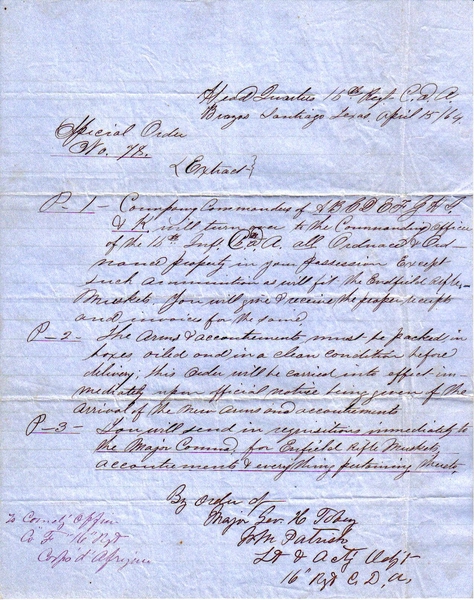 Head Quarters 16th Regt C. d. A
Brazos Santiago Texas, April 15/64
Special Order
No. 78.
{Extract}
P-1- Company Commanders of A B C D E F G H I
& K will turn over to the Commanding Officer
of the 15th Inft. C. d. A. all Ordnance & Ord
nance property in your possession Except
such ammunition as will fit the Endfield Rifle
Muskets. You will give & receive the proper receipts
and invoices for the same
P-2- The Arms & accoutrements must be packed in
boxes, oiled and in a clean condition before
delivery; this order will be carried into effect im
mediately upon official notice being given of the
arrival of the new Arms and accoutrements
P-3- You will send in requisitions immediately to
the Major Commd. for Enfield Rifle Muskets,
accoutrements & everything pertaining thereto
By Order of
Major Geo. H Tobey
Wm Patrick
Lt & Actg Adjt
16" Rgt C. D. A.
To Comdg Officer
Co "F" 16" Rgt
Corps d'Afrique